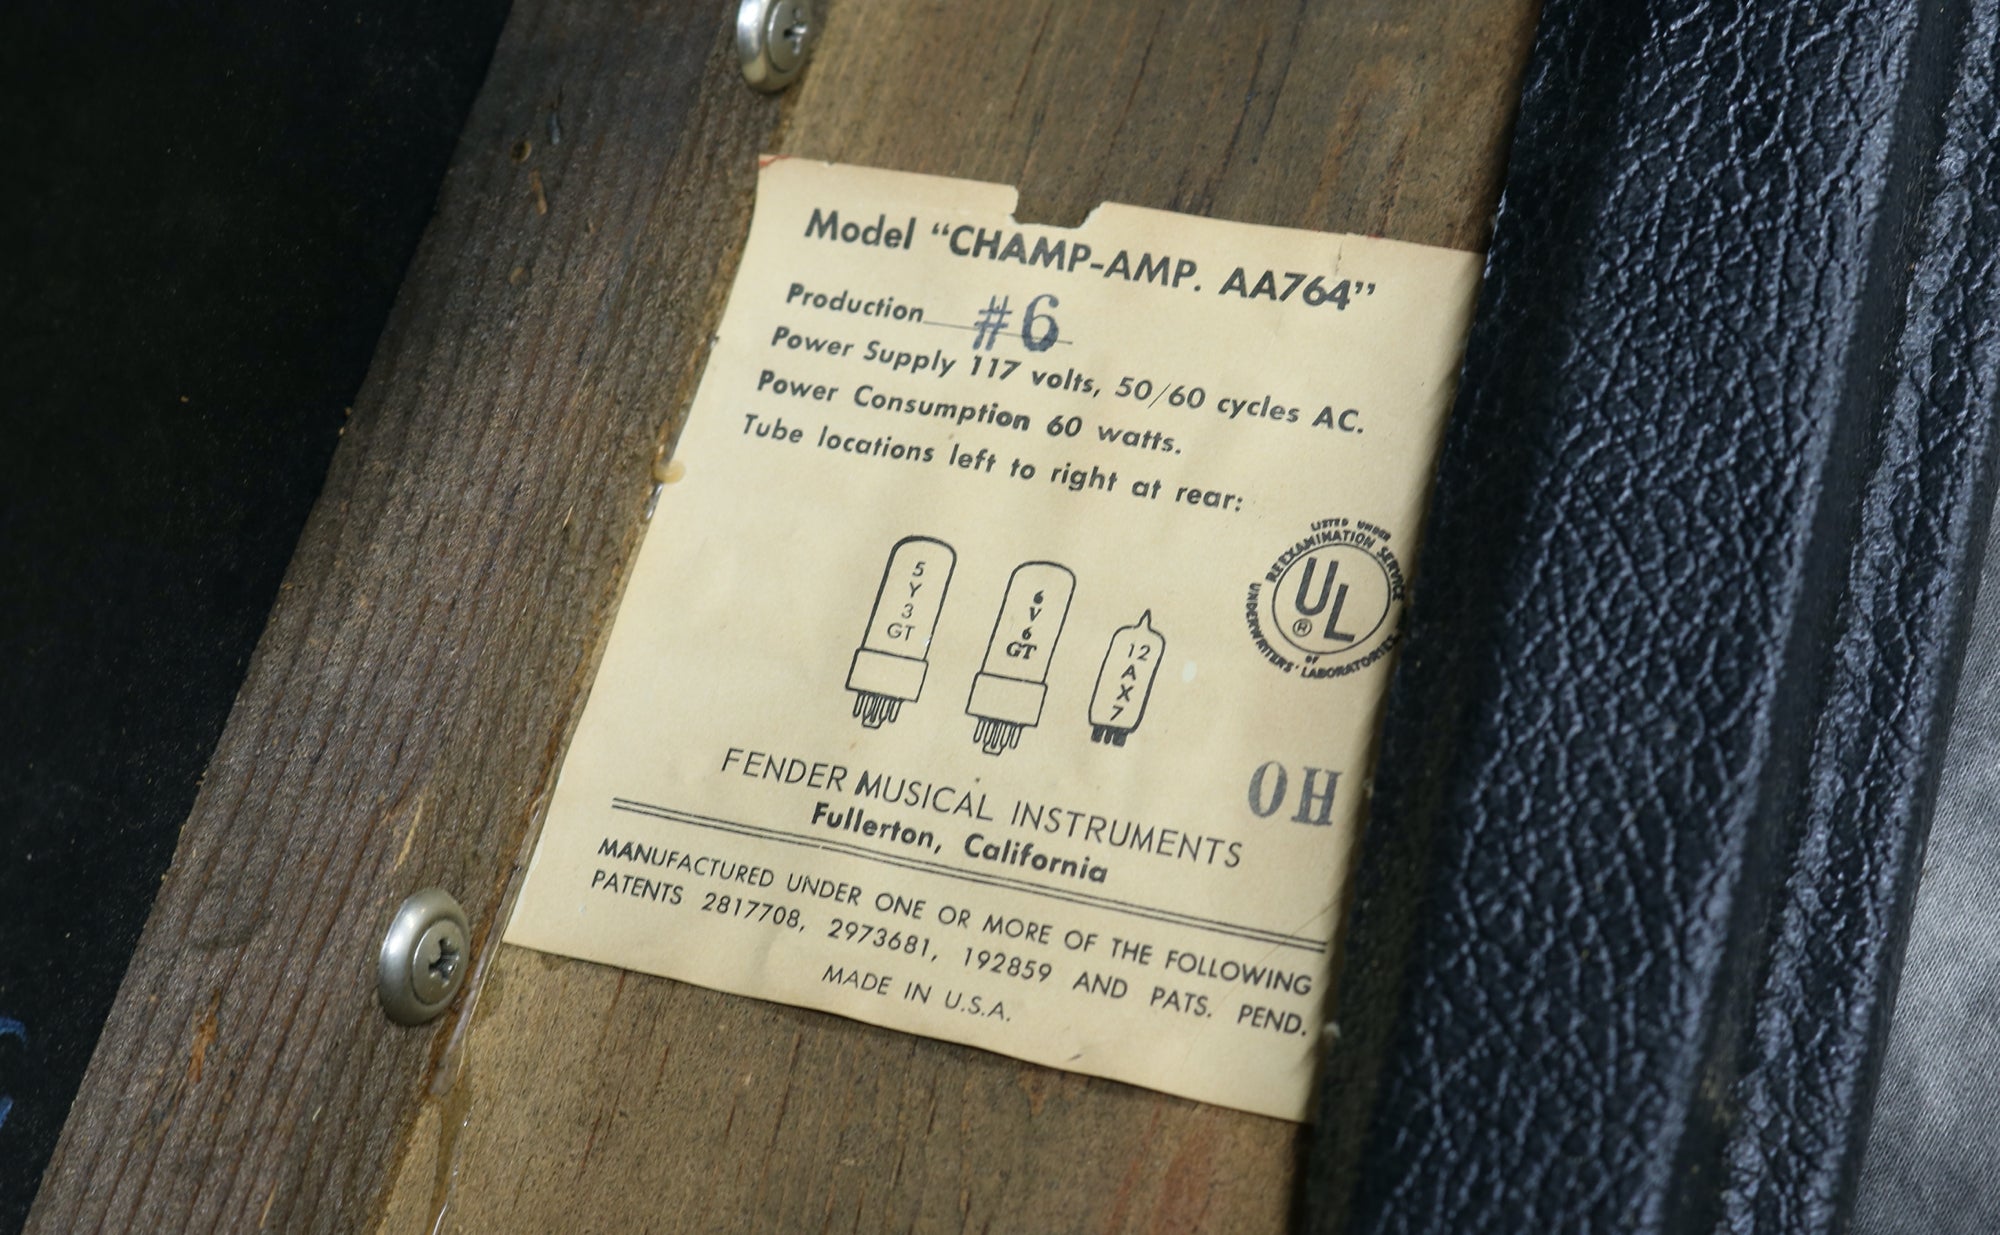 Model “CHAMP-AMP. AA764”
Production #6
Power Supply 117 volts, 50/60 cycles AC.
Power Consumption 60 watts.
Tube locations left to right at rear:
5
Y
3
GT
6
V
6
GT
12
A
X
7
LISTED UNDER
REEXAMINATION SERVICE
UL
®
OF
UNDERWRITERS' LABORATORIES,
OH
FENDER MUSICAL INSTRUMENTS
Fullerton, California
MANUFACTURED UNDER ONE OR MORE OF THE FOLLOWING
PATENTS 2817708, 2973681, 192859 AND PATS. PEND.
MADE IN U.S.A.